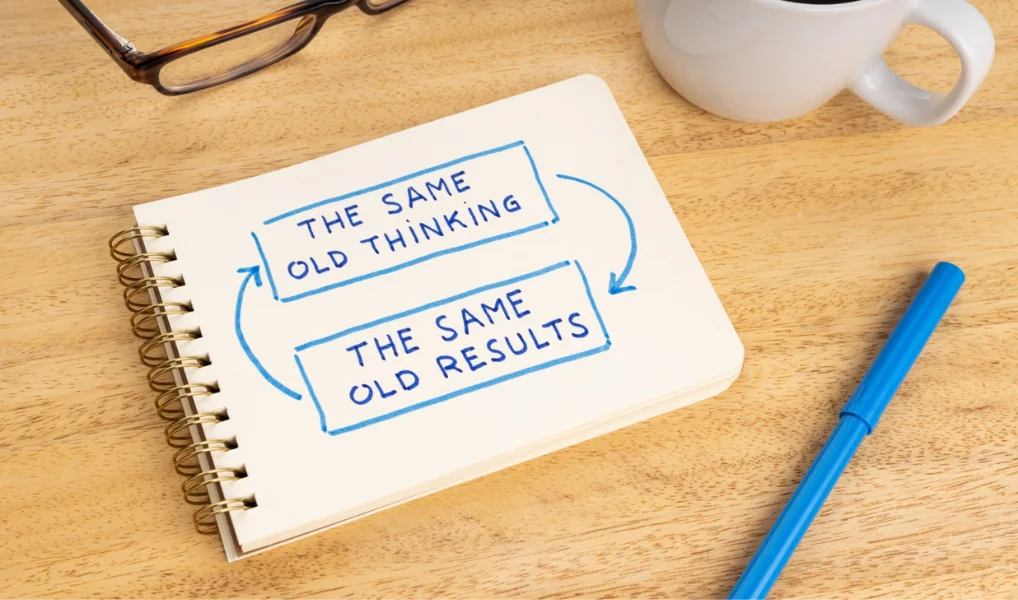 THE SAME
OLD THINKING
THE SAME
OLD RESULTS